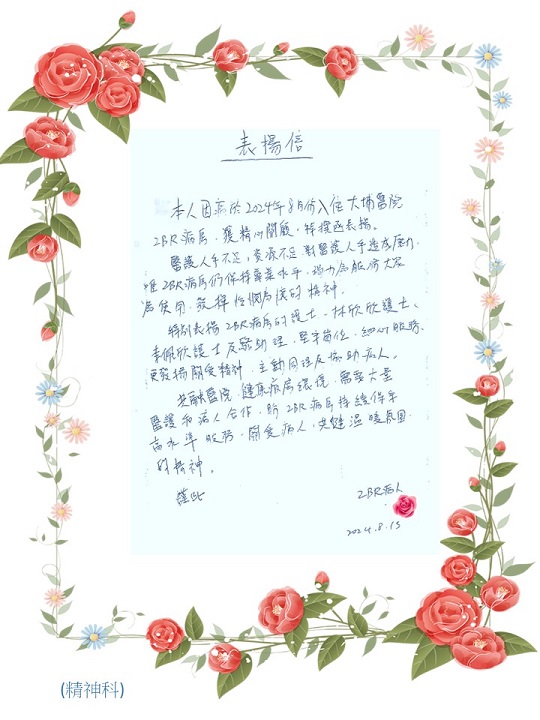 表揚信
本人因病於2024年8月份入住大埔醫院
2BR病房，獲精心關顧，特撰函表揚。
醫護人手不足，資源不足，對醫護人手造成壓力，
唯2BR病房仍保持專業水平，竭力為服務大眾
為使用，發揮
的精神。
特別表揚2BR病房的護士，林欣欣護士、
李佩欣護士及
助理，堅守崗位，細心服務，
更發揚關愛精神，主動同理及協助病人。
共融醫院，健康病房環境，需要大量
醫護和病人合作，盼2BR病房持續保守
高水準服務，關愛病人，共建溫暖氛圍
的精神。
謹此
2BR病人
2024.8.15
(精神科)